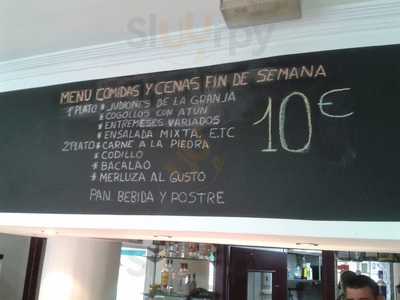 MENU COMIDAS Y CENAS FIN DE SEMANA
1º PLATO * JUDIONES DE LA GRANJA
* COGOLLOS CON ATUN
* ENTREMESES VARIADOS
* ENSALADA MIXTA, E.T.C
2º PLATO * CARNE A LA PIEDRA
* CODILLO
* BACALAO
* MERLUZA AL GUSTO
PAN, BEBIDA Y POSTRE
10€
Sluurpy